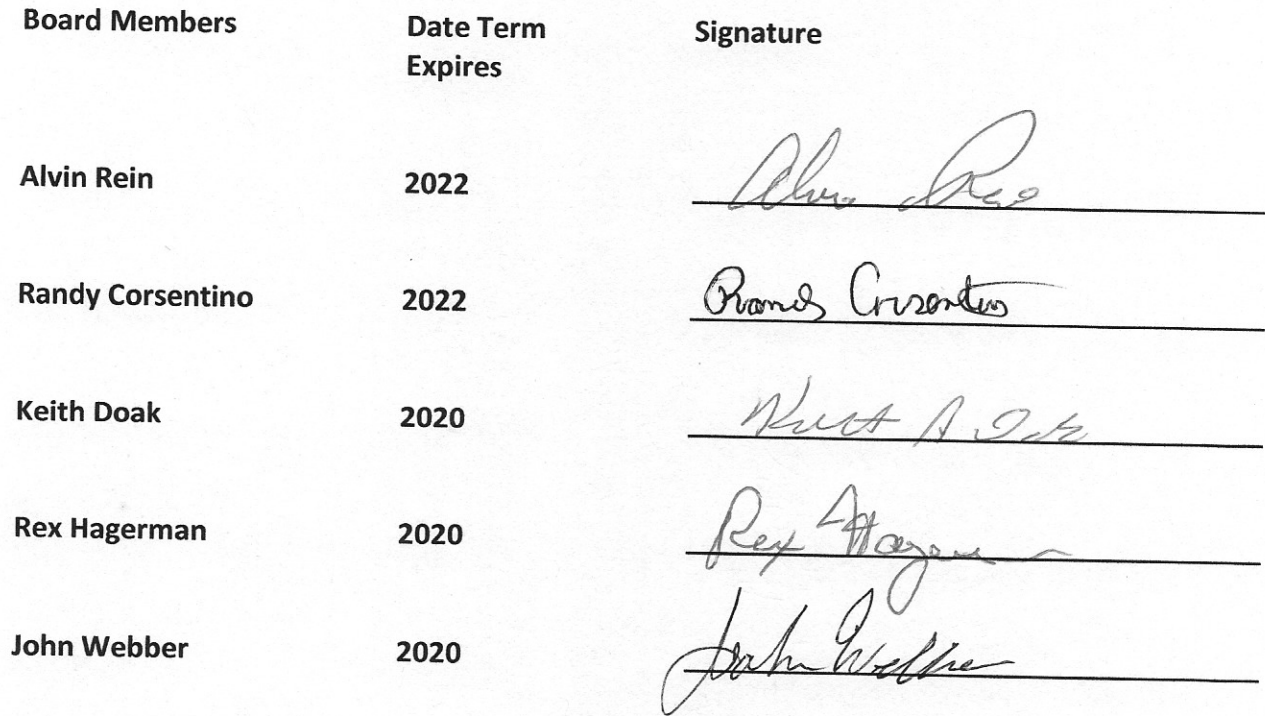 Board Members Date Term Expires Signature
Alvin Rein 2022 Alvin Rein
Randy Corsentino 2022 Randy Corsentino
Keith Doak 2020 Keith A Doak
Rex Hagerman 2020 Rex Hagerman
John Webber 2020 John Webber